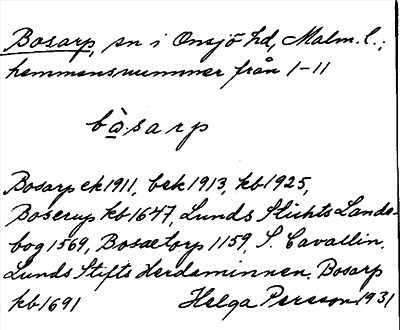 Bosarp, sn i Onsjö hd, Malm. l.;
hemmansnummer från 1-11
bòsarp
Bosarp ek 1911, bek 1913, kb 1925,
Boserup kb 1647, Lunds Stichts Lands-
bog 1569, Bosætorp 1159, S. Cavallin.
Lunds Stifts Herdaminnen. Bosarp
kb 1691 Helga Persson 1931